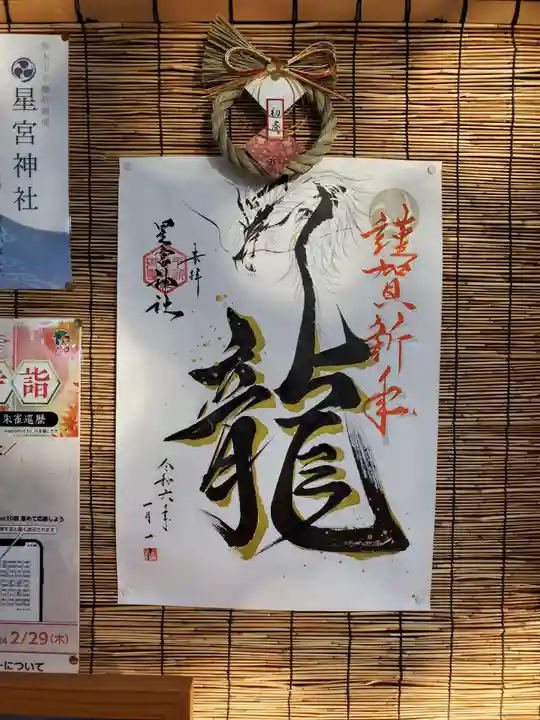 初春
謹賀新年
龍
奉拝
星宮神社
令和六年
一月一日
星宮神社
詣
朱雀巡暦
2/29(木)
ーについて